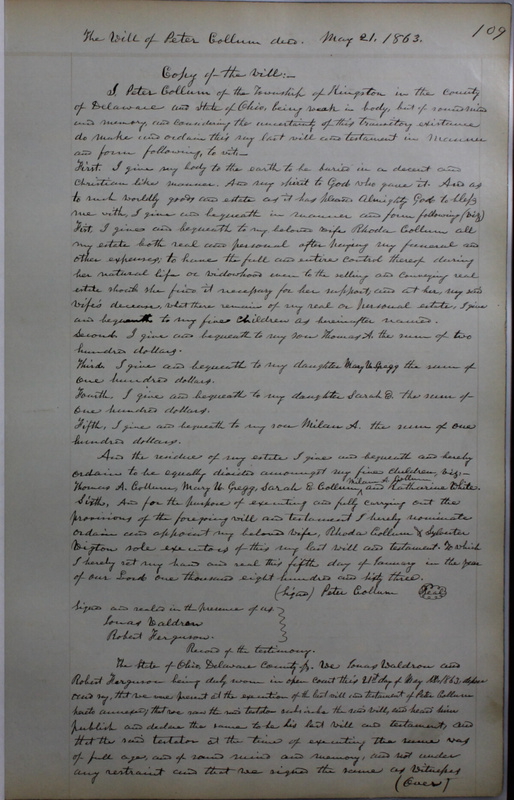 109
The Will of Peter Collum decd. May 21. 1863.
Copy of the will:—
I Peter Collum of the Township of Kingston in the county
of Delaware and State of Ohio, being weak in body, but of sound mind
and memory, and considering the uncertainty of this transitory existance
do make and ordain this my last will and testament in manner
and form following, to wit,—
First. I give my body to the earth to be buried in a decent and
Christian like manner. And my spirit to God who gave it. And as
to such worldly goods and estate as it has pleased Almighty God to bless
me with, I give and bequeath in manner and form following (viz)
First, I give and bequeath to my beloved wife Rhoda Collum all
my estate both real and personal after paying my funeral and
other expenses; to have the full and entire control thereof during
her natural life or widowhood even to the selling and conveying real
estate should she find it necessary for her support, and at her, my said
wife's decease, whatever remains of my real or personal estate, I give
and bequeath to my five children as hereinafter named.
Second. I give and bequeath to my son Thomas A. the sum of two
hundred dollars.
Third. I give and bequeath to my daughter Mary U. Gregg the sum of
one hundred dollars.
Fourth. I give and bequeath to my daughter Sarah E. the sum of
one hundred dollars.
Fifth, I give and bequeath to my son Milan A. the sum of one
hundred dollars.
And the residue of my estate I give and bequeath and hereby
ordain to be equally divided amongst my five children, viz:—
Thomas A. Collum, Mary U. Gregg, Sarah E Collum, Milan A. Collum and Katherine White.
Sixth, And for the purpose of executing and fully carrying out the
provisions of the foregoing will and testament I hereby nominate
ordain and appoint my beloved wife, Rhoda Collum & Sylvester
Wigton sole executors of this my last will and testament. To which
I hereby set my hand and seal this fifth day of January in the year
of our Lord one thousand eight hundred and sixty three.
(Signed) Peter Collum Seal
Signed and sealed in the presence of us
Jonas Waldron
Robert Ferguson.
Record of the testimony.
The State of Ohio, Delaware County ss. We Jonas Waldron and
Robert Ferguson being duly sworn in open court this 21st day of May AD 1863 depose
and say, that we were present at the execution of the last will and testament of Peter Collum
hereto annexed; that we saw the said testator subscribe the said will, and heard him
publish and declare the same to be his last will and testament, and
that the said testator at the time of executing the same was
of full age, and of sound mind and memory, and not under
any restraint and that we signed the same as witnesses
(Over)